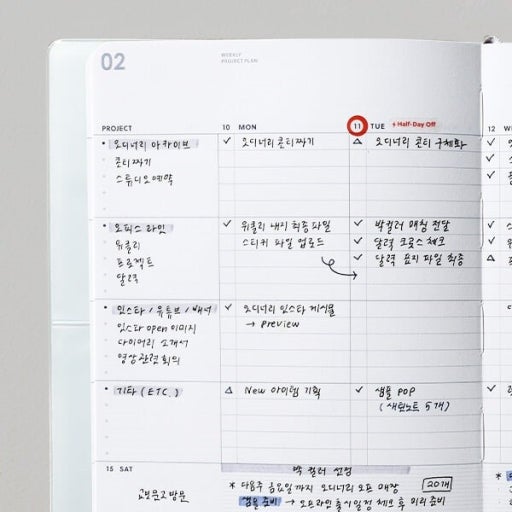 02
WEEKLY
PROJECT PLAN
PROJECT
10 MON
11 TUE + Half-Day Off
12 W
오디너리 아카이브
콘티짜기
스튜디오예약
✓ 오디너리 콘티짜기
△ 오디너리 콘티 구체화
오피스 라인
위클리
프로젝트
달력
✓ 위클리 내지 최종 파일
스티커 파일 업로드
✓ 박컬러 매칭 전달
✓ 달력 크로스 체크
✓ 달력 표지 파일 최종
인스타 / 유튜브 / 배너
인스타 open 이미지
다이어리 소개서
영상관련 회의
✓ 오디너리 인스타 게시물
→ preview
기타 (ETC.)
△ New 아이템 기획
✓ 샘플 POP
(새원노트 5개)
15 SAT
교보문고 방문
박 컬러 선정
* 다음주 금요일까지 오디너리 오프 매장 20개
샘플 준비 → 오프라인 출시일정 체크 후 미리 준비